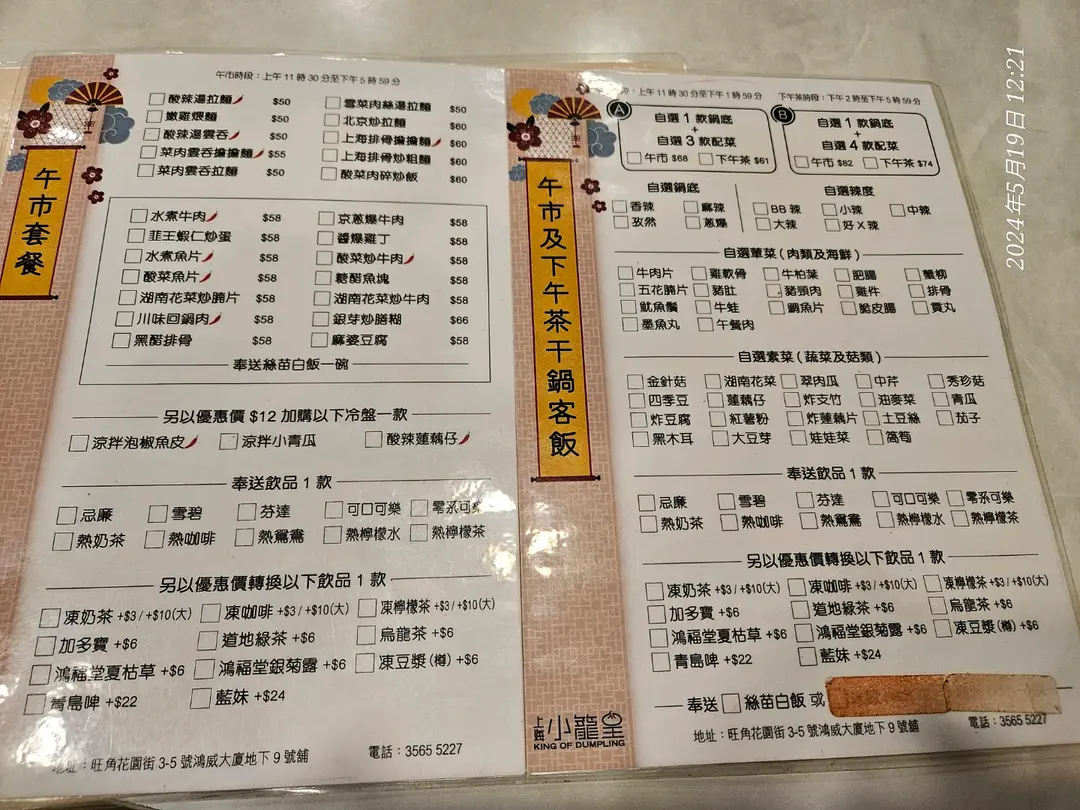 午市時段：上午 11 時 30 分至下午 5 時 59 分
酸辣湯拉麵 $50 雪菜肉絲湯拉麵 $50
嫩雞煨麵 $50 北京炒拉麵 $60
酸辣湯雲吞 $50 上海排骨擔擔麵 $60
菜肉雲吞擔擔麵 $55 上海排骨炒粗麵 $60
菜肉雲吞拉麵 $50 酸菜肉碎炒飯 $60
午市套餐
水煮牛肉 $58 京蔥爆牛肉 $58
韮王蝦仁炒蛋 $58 醬爆雞丁 $58
水煮魚片 $58 酸菜炒牛肉 $58
酸菜魚片 $58 糖醋魚塊 $58
湖南花菜炒腩片 $58 湖南花菜炒牛肉 $58
川味回鍋肉 $58 銀芽炒膳糊 $66
黑醋排骨 $58 麻婆豆腐 $58
奉送絲苗白飯一碗
另以優惠價 $12 加購以下冷盤一款
涼拌泡椒魚皮 涼拌小青瓜 酸辣蓮藕仔
奉送飲品 1 款
忌廉 雪碧 芬達 可口可樂 零系可樂
熱奶茶 熱咖啡 熱鴛鴦 熱檸檬水 熱檸檬茶
另以優惠價轉換以下飲品 1 款
凍奶茶 +$3 / +$10(大) 凍咖啡 +$3 / +$10(大) 凍檸檬茶 +$3 / +$10(大)
加多寶 +$6 道地綠茶 +$6 烏龍茶 +$6
鴻福堂夏枯草 +$6 鴻福堂銀菊露 +$6 凍豆漿(樽) +$6
青島啤 +$22 藍妹 +$24
地址：旺角花園街 3-5 號鴻威大廈地下 9 號舖 電話：3565 5227
上海小龍皇
KING OF DUMPLING
上午 11 時 30 分至下午 1 時 59 分 下午茶時段：下午 2 時至下午 5 時 59 分
A 自選 1 款鍋底
+
自選 3 款配菜
午市 $68 下午茶 $61
B 自選 1 款鍋底
+
自選 4 款配菜
午市 $82 下午茶 $74
午市及下午茶干鍋客飯
自選鍋底 自選辣度
香辣 麻辣 BB 辣 小辣 中辣
孜然 蔥爆 大辣 好 X 辣
自選葷菜 (肉類及海鮮)
牛肉片 雞軟骨 牛柏葉 肥腸 蟹柳
五花腩片 豬肚 豬頸肉 雞件 排骨
魷魚鬚 牛蛙 鯛魚片 脆皮腸 貢丸
墨魚丸 午餐肉
自選素菜 (蔬菜及菇類)
金針菇 湖南花菜 翠肉瓜 中芹 秀珍菇
四季豆 蓮藕仔 炸支竹 油麥菜 青瓜
炸豆腐 紅薯粉 炸蓮藕片 土豆絲 茄子
黑木耳 大豆芽 娃娃菜 萵筍
奉送飲品 1 款
忌廉 雪碧 芬達 可口可樂 零系可樂
熱奶茶 熱咖啡 熱鴛鴦 熱檸檬水 熱檸檬茶
另以優惠價轉換以下飲品 1 款
凍奶茶 +$3 / +$10(大) 凍咖啡 +$3 / +$10(大) 凍檸檬茶 +$3 / +$10(大)
加多寶 +$6 道地綠茶 +$6 烏龍茶 +$6
鴻福堂夏枯草 +$6 鴻福堂銀菊露 +$6 凍豆漿(樽) +$6
青島啤 +$22 藍妹 +$24
奉送 絲苗白飯 或
地址：旺角花園街 3-5 號鴻威大廈地下 9 號舖 電話：3565 5227
2024年5月19日 12:21